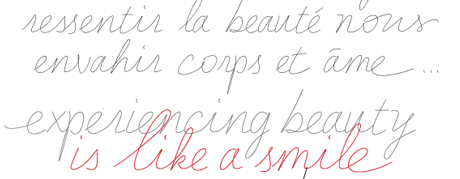 ressentir la beauté nous
envahir corps et āme ...
experiencing beauty
is like a smile